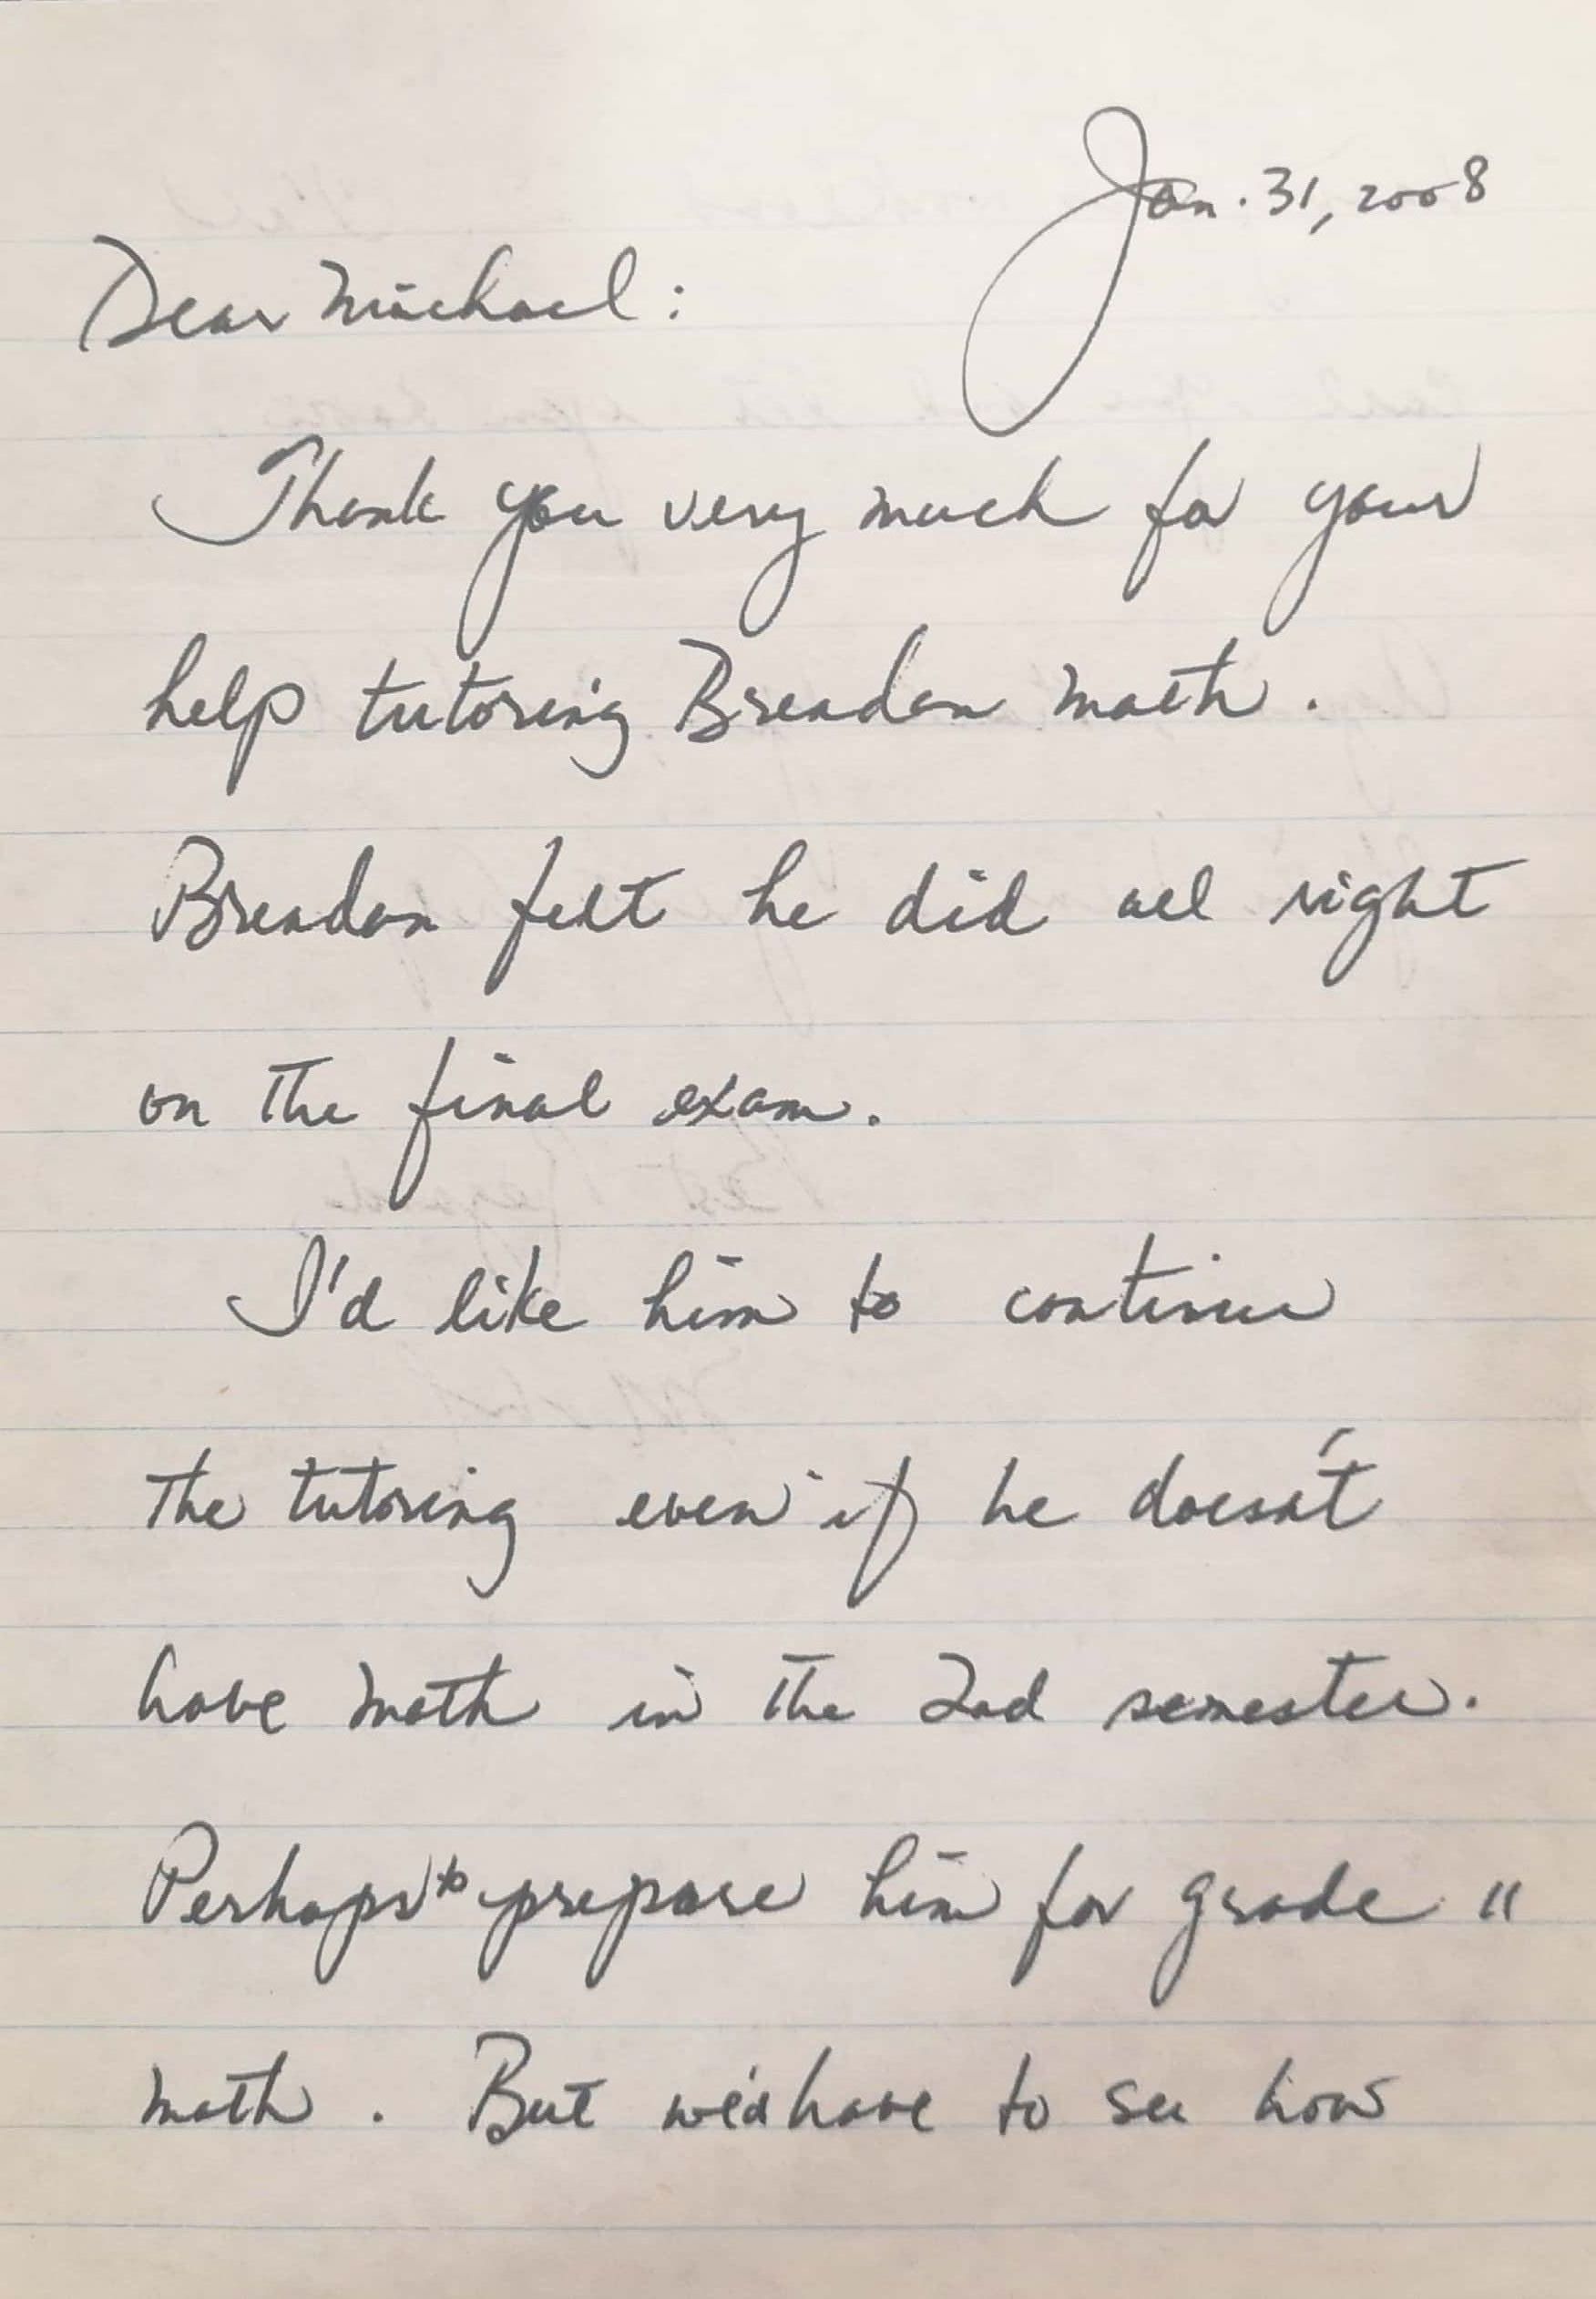 Jan. 31, 2008
Dear Michael:
Thank you very much for your
help tutoring Brendan math.
Brendan felt he did all right
on the final exam.
I'd like him to continue
the tutoring even if he doesn't
have math in the 2nd semester.
Perhaps to prepare him for grade 11
math. But we'd have to see how